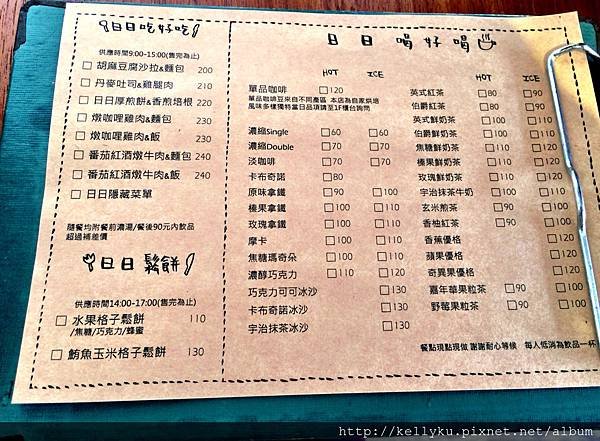 日日吃好吃
供應時間9:00-15:00(售完為止)
胡麻豆腐沙拉&麵包 200
丹麥吐司&雞腿肉 210
日日厚煎餅&香煎培根 220
燉咖哩雞肉&麵包 230
燉咖哩雞肉&飯 230
番茄紅酒燉牛肉&麵包 240
番茄紅酒燉牛肉&飯 240
日日隱藏菜單
隨餐均附餐前濃湯/餐後90元內飲品
超過補差價
日日鬆餅
供應時間14:00-17:00(售完為止)
水果格子鬆餅 110
/焦糖/巧克力/蜂蜜
鮪魚玉米格子鬆餅 130
日日喝好喝
HOT ICE
單品咖啡 120
單品咖啡豆來自不同產區 本店為自家烘培
風味多樣獨特當日品項請至1F櫃台詢問
濃縮Single 60 60
濃縮Double 70 70
淡咖啡 70
卡布奇諾 80
原味拿鐵 90 100
榛果拿鐵 100 110
玫瑰拿鐵 100 110
摩卡 100 110
焦糖瑪奇朵 100 110
濃醇巧克力 110 120
巧克力可可冰沙 130
卡布奇諾冰沙 130
宇治抹茶冰沙 130
HOT ICE
英式紅茶 80 90
伯爵紅茶 80 90
英式鮮奶茶 100 110
伯爵鮮奶茶 100 110
焦糖鮮奶茶 110 120
榛果鮮奶茶 110 120
玫瑰鮮奶茶 110 120
宇治抹茶牛奶 100 110
玄米煎茶 90 100
香柚紅茶 90 100
香蕉優格 120
蘋果優格 120
奇異果優格 120
嘉年華果粒茶 90 100
野莓果粒茶 90 100
餐點現點現做 謝謝耐心等候 每人低消為飲品一杯
http://kellyku.pixnet.net/album